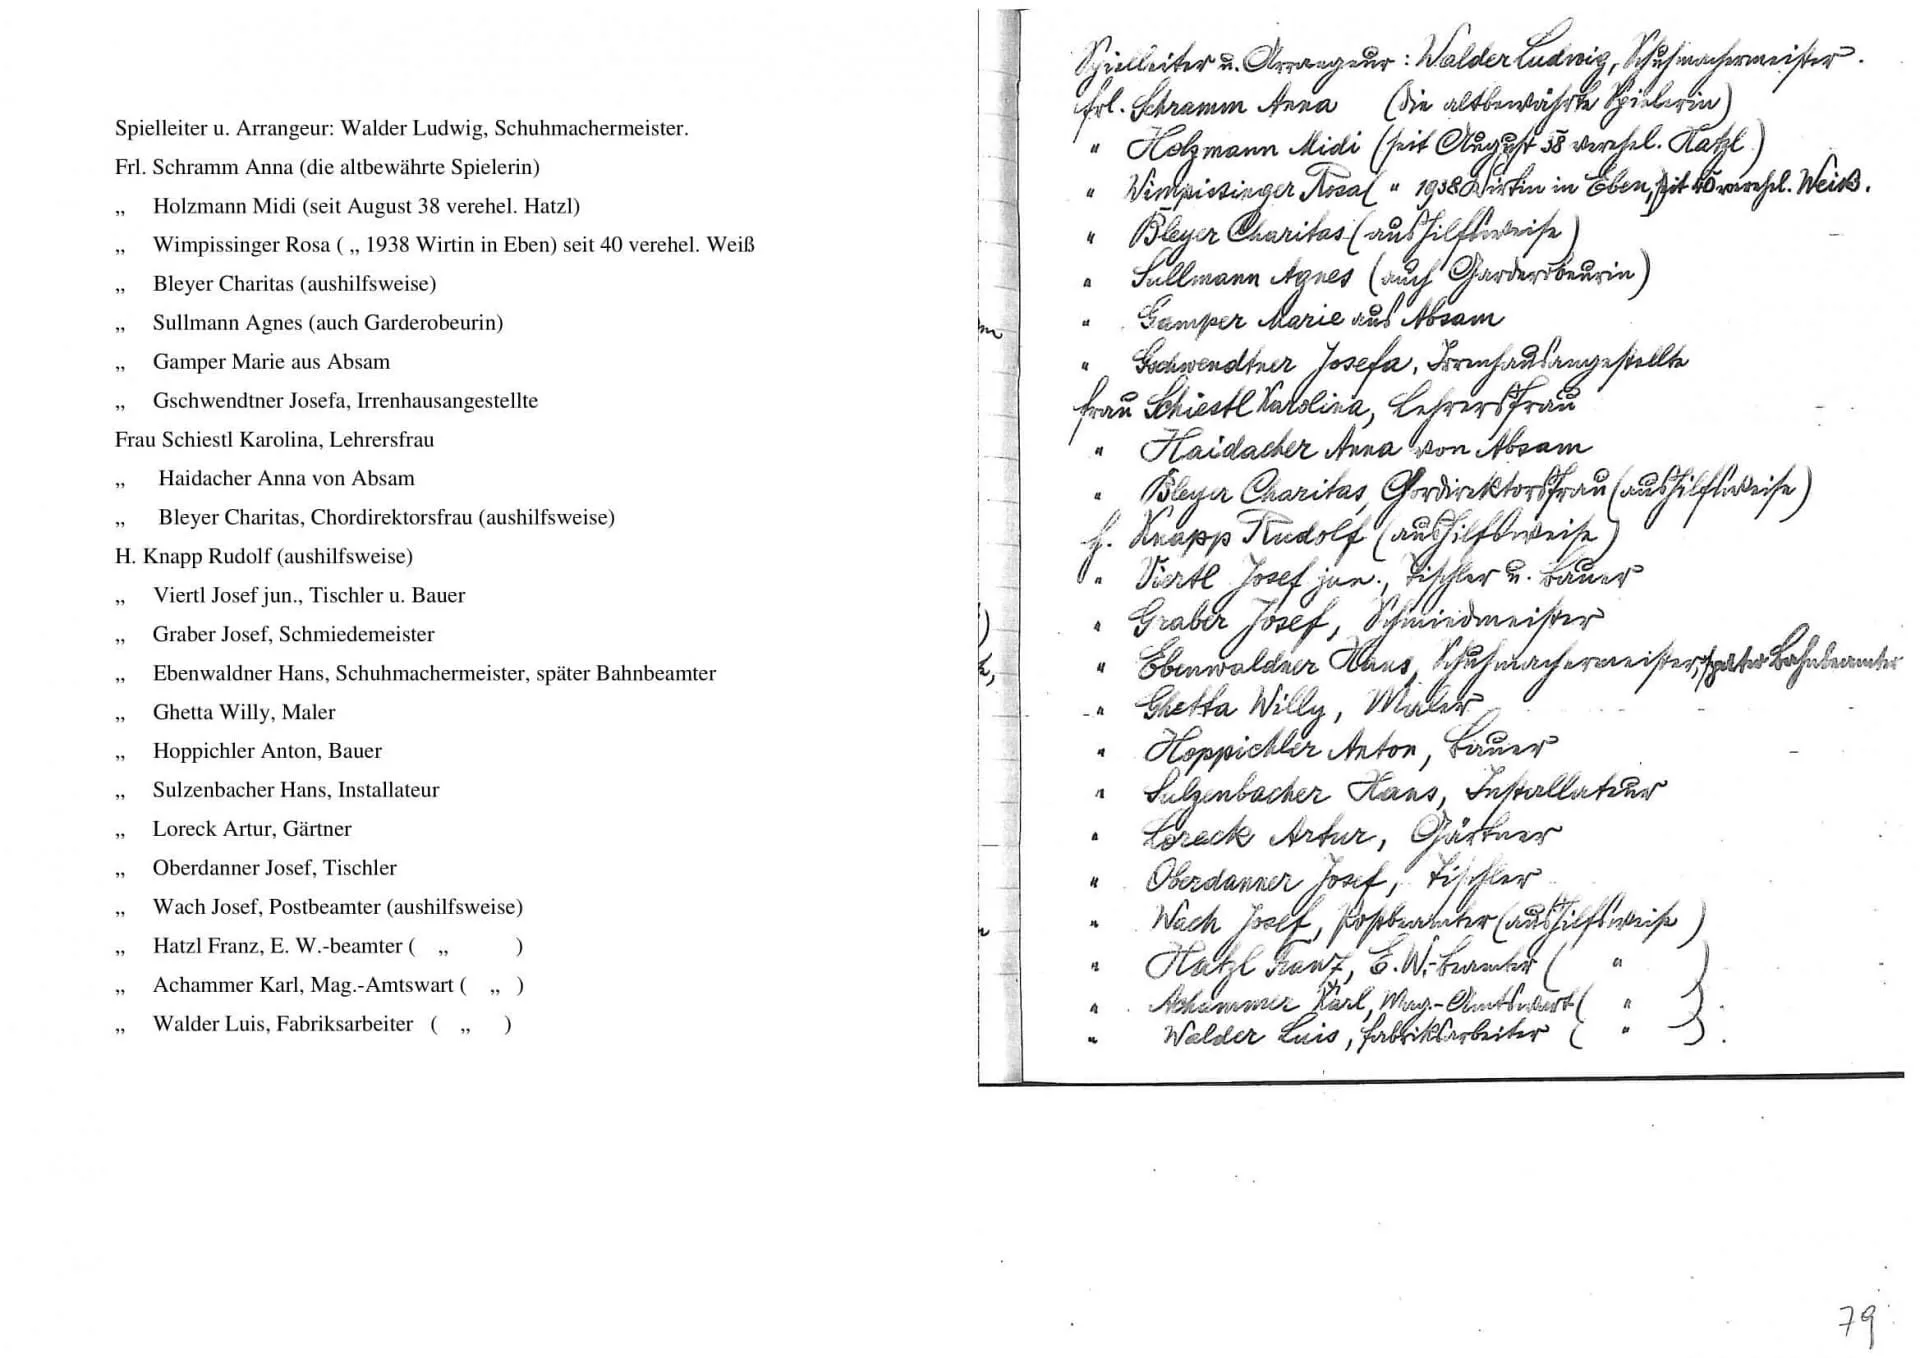 Spielleiter u. Arrangeur: Walder Ludwig, Schuhmachermeister.
Frl. Schramm Anna (die altbewährte Spielerin)
„ Holzmann Midi (seit August 38 verehel. Hatzl)
„ Wimpissinger Rosa ( „ 1938 Wirtin in Eben) seit 40 verehel. Weiß
„ Bleyer Charitas (aushilfsweise)
„ Sullmann Agnes (auch Garderobeurin)
„ Gamper Marie aus Absam
„ Gschwendtner Josefa, Irrenhausangestellte
Frau Schiestl Karolina, Lehrersfrau
„ Haidacher Anna von Absam
„ Bleyer Charitas, Chordirektorsfrau (aushilfsweise)
H. Knapp Rudolf (aushilfsweise)
„ Viertl Josef jun., Tischler u. Bauer
„ Graber Josef, Schmiedemeister
„ Ebenwaldner Hans, Schuhmachermeister, später Bahnbeamter
„ Ghetta Willy, Maler
„ Hoppichler Anton, Bauer
„ Sulzenbacher Hans, Installateur
„ Loreck Artur, Gärtner
„ Oberdanner Josef, Tischler
„ Wach Josef, Postbeamter (aushilfsweise)
„ Hatzl Franz, E. W.-beamter ( „ )
„ Achammer Karl, Mag.-Amtswart ( „ )
„ Walder Luis, Fabriksarbeiter ( „ )
Spielleiter u. Arrangeur: Walder Ludwig, Schuhmachermeister.
Frl. Schramm Anna (die altbewährte Spielerin)
" Holzmann Midi (seit August 38 verehel. Hatzl)
" Wimpissinger Rosa ( " 1938 Wirtin in Eben, seit 40 verehel. Weiß.
" Bleyer Charitas (aushilfsweise)
" Sullmann Agnes (auch Garderobeurin)
" Gamper Marie aus Absam
" Gschwendtner Josefa, Irrenhausangestellte
Frau Schiestl Karolina, Lehrersfrau
" Haidacher Anna von Absam
" Bleyer Charitas, Chordirektorsfrau (aushilfsweise)
H. Knapp Rudolf (aushilfsweise)
" Viertl Josef jun., Tischler u. Bauer
" Graber Josef, Schmiedmeister
" Ebenwaldner Hans, Schuhmachermeister, später Bahnbeamter
" Ghetta Willy, Maler
" Hoppichler Anton, Bauer
" Sulzenbacher Hans, Installateur
" Loreck Artur, Gärtner
" Oberdanner Josef, Tischler
" Wach Josef, Postbeamter (aushilfsweise)
" Hatzl Franz, E. W.-beamter ( " )
" Achammer Karl, Mag.-Amtswart ( " )
" Walder Luis, Fabriksarbeiter ( " )
79